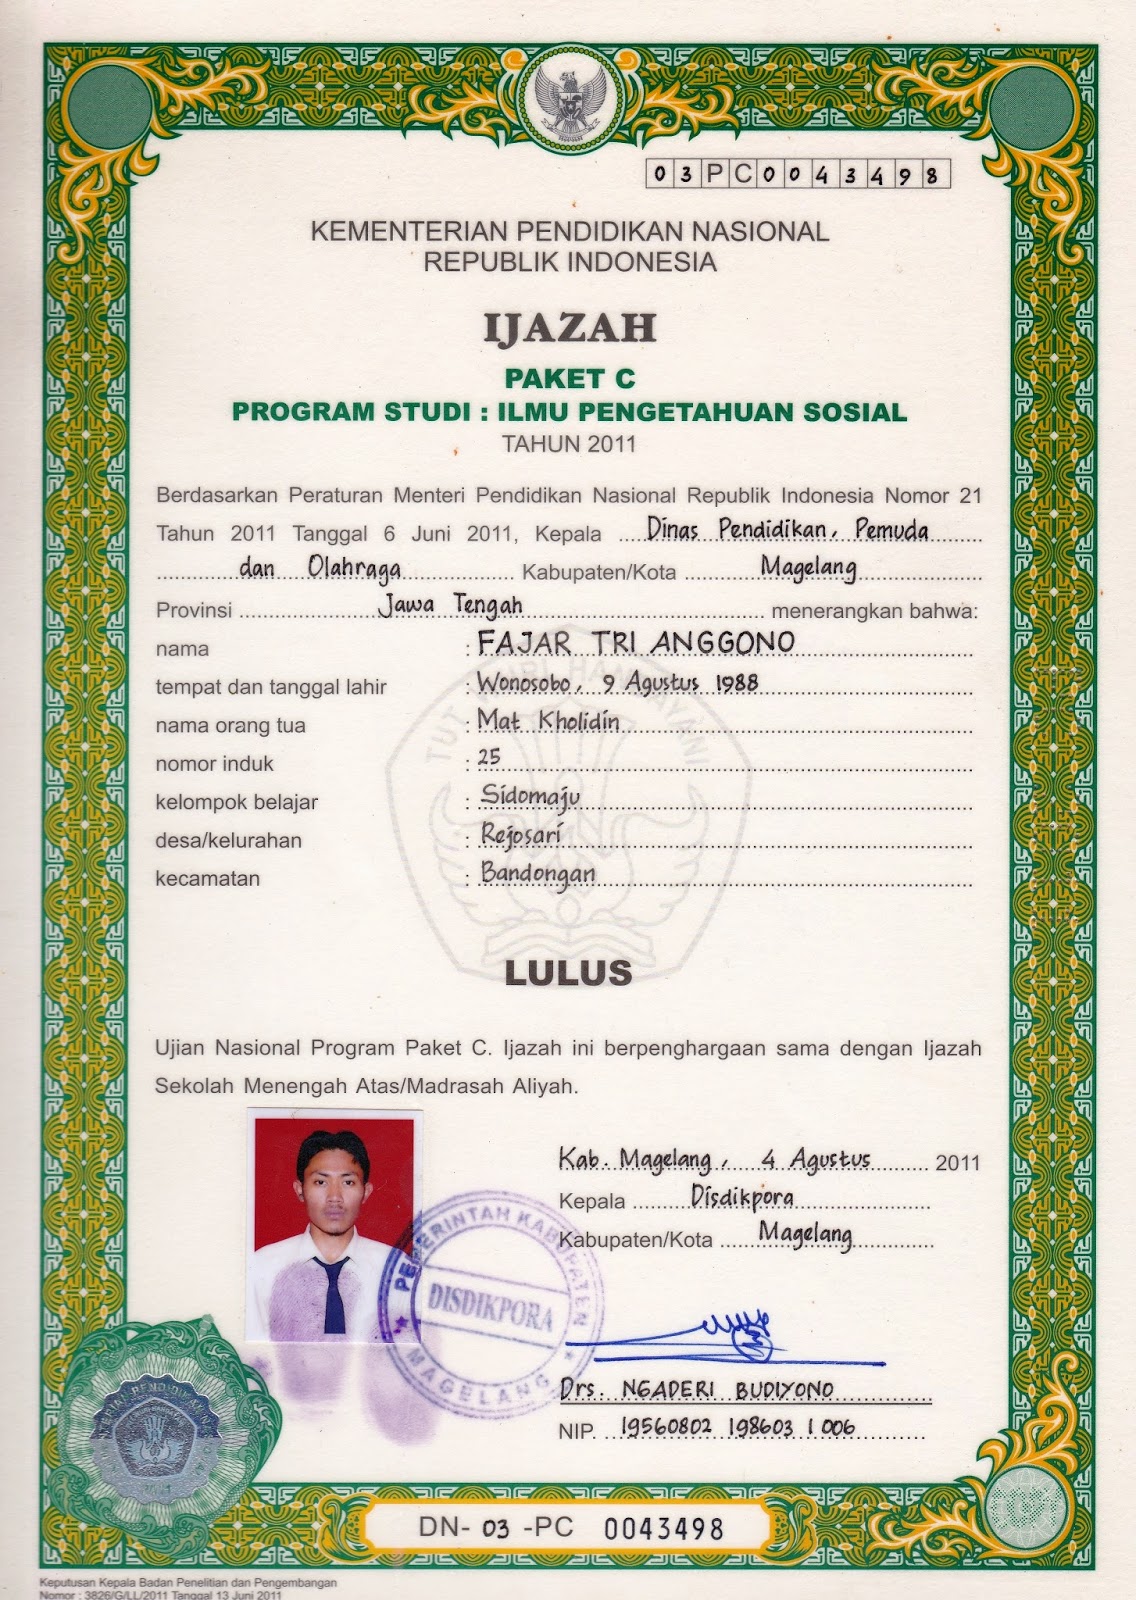 03PC0043498
KEMENTERIAN PENDIDIKAN NASIONAL
REPUBLIK INDONESIA
IJAZAH
PAKET C
PROGRAM STUDI : ILMU PENGETAHUAN SOSIAL
TAHUN 2011
Berdasarkan Peraturan Menteri Pendidikan Nasional Republik Indonesia Nomor 21
Tahun 2011 Tanggal 6 Juni 2011, Kepala Dinas Pendidikan, Pemuda
dan Olahraga Kabupaten/Kota Magelang
Provinsi Jawa Tengah menerangkan bahwa:
nama : FAJAR TRI ANGGONO
tempat dan tanggal lahir : Wonosobo, 9 Agustus 1988
nama orang tua : Mat Kholidin
nomor induk : 25
kelompok belajar : Sidomaju
desa/kelurahan : Rejosari
kecamatan : Bandongan
TUT WURI HANDAYANI
LULUS
Ujian Nasional Program Paket C. Ijazah ini berpenghargaan sama dengan Ijazah
Sekolah Menengah Atas/Madrasah Aliyah.
Kab. Magelang, 4 Agustus 2011
Kepala Disdikpora
Kabupaten/Kota Magelang
PEMERINTAH KABUPATEN
DISDIKPORA
MAGELANG
Drs. NGADERI BUDIYONO
NIP. 19560802 198603 1 006
DN- 03 -PC 0043498
Keputusan Kepala Badan Penelitian dan Pengembangan
Nomor : 3826/G/LL/2011 Tanggal 13 Juni 2011